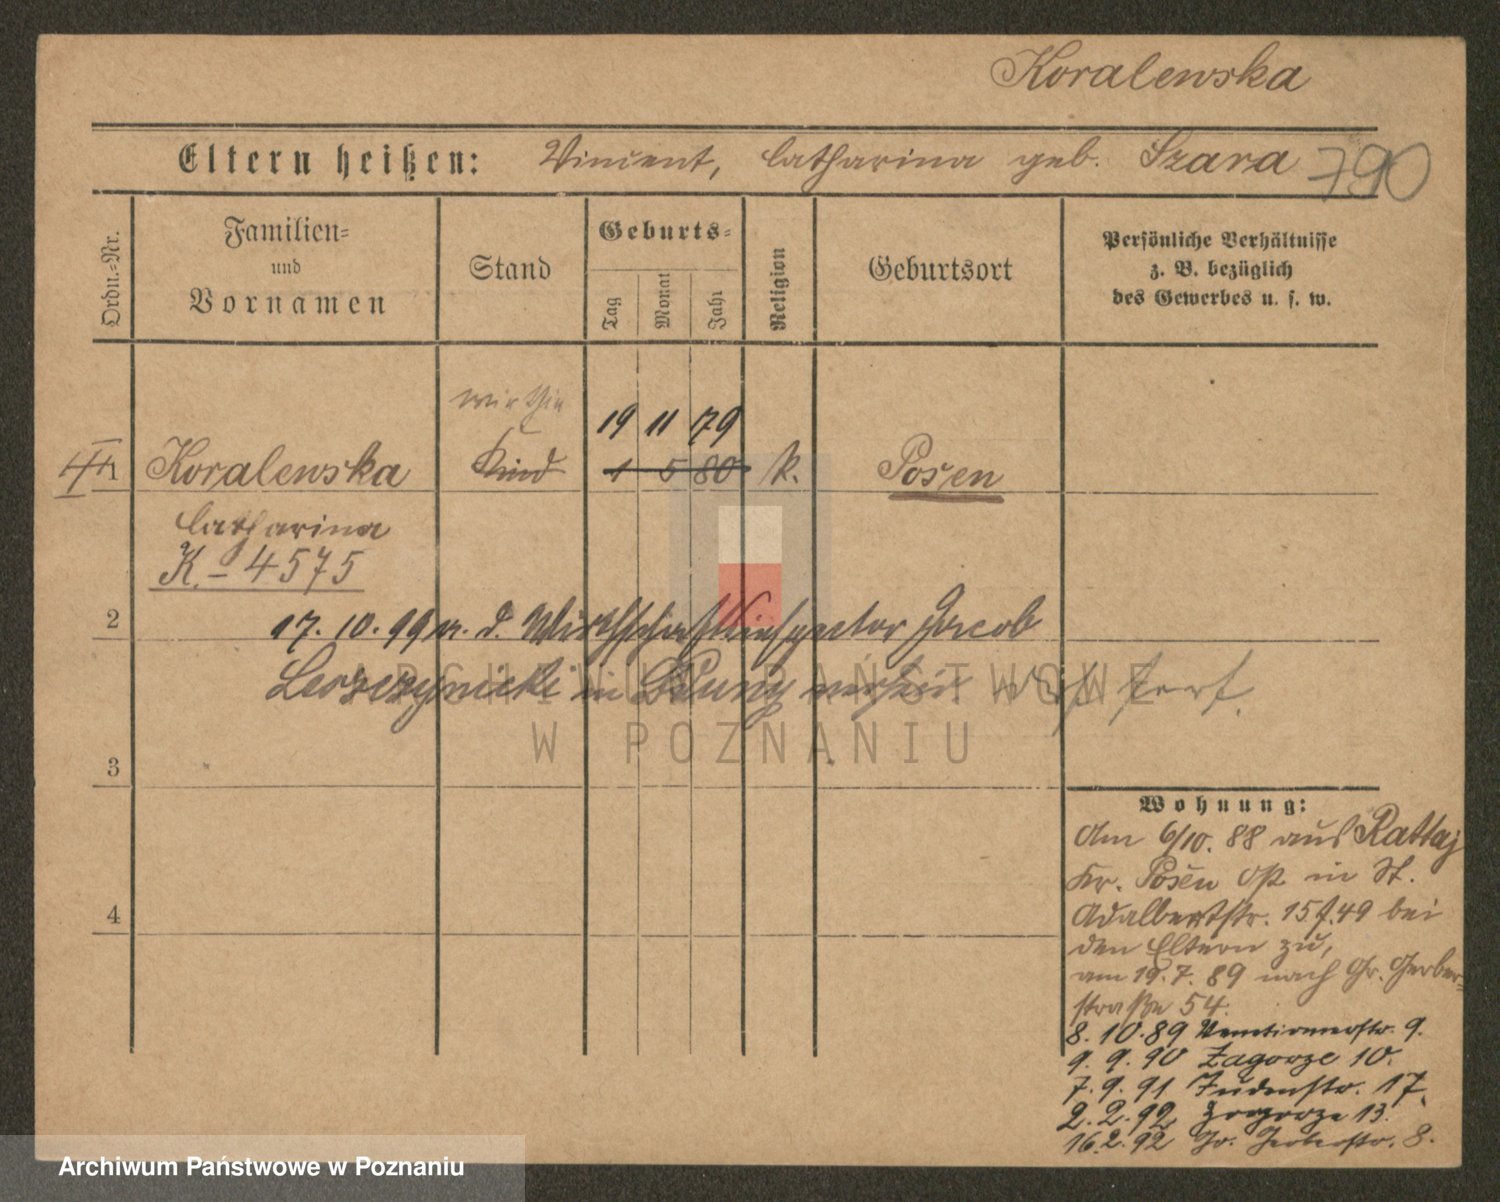 Koralewska
Eltern heißen: Vincent, Catharina geb. Szara 790
Ordn.=Nr.
Familien=
und
Vornamen
Stand
Geburts=
Tag
Monat
Jahr
Religion
Geburtsort
Persönliche Verhältnisse
z. B. bezüglich
des Gewerbes u. s. w.
19 11 79
1 Koralewska Kind 1 5 80 k. Posen
Catharina
K. – 4575
2
17. 10. 99 m. d. Wirthschaftsinspector Jacob
Leszczynicki in verh.
3
4
ARCHIWUM PAŃSTWOWE
W POZNANIU
Wohnung:
Am 6/10. 88 aus Rattaj
Kr. Posen Ost in St.
Adalbertstr. 49 bei
den Eltern zu,
am 19. 7. 89 nach Gr. Gerber-
straße 54.
8. 10. 89 Venetianerstr. 9.
9. 9. 90 Zagorze 10.
7. 9. 91 Judenstr. 17.
2. 2. 92 Zagorze 13.
16. 2. 92 Gr. Gerberstr. 8.
Archiwum Państwowe w Poznaniu